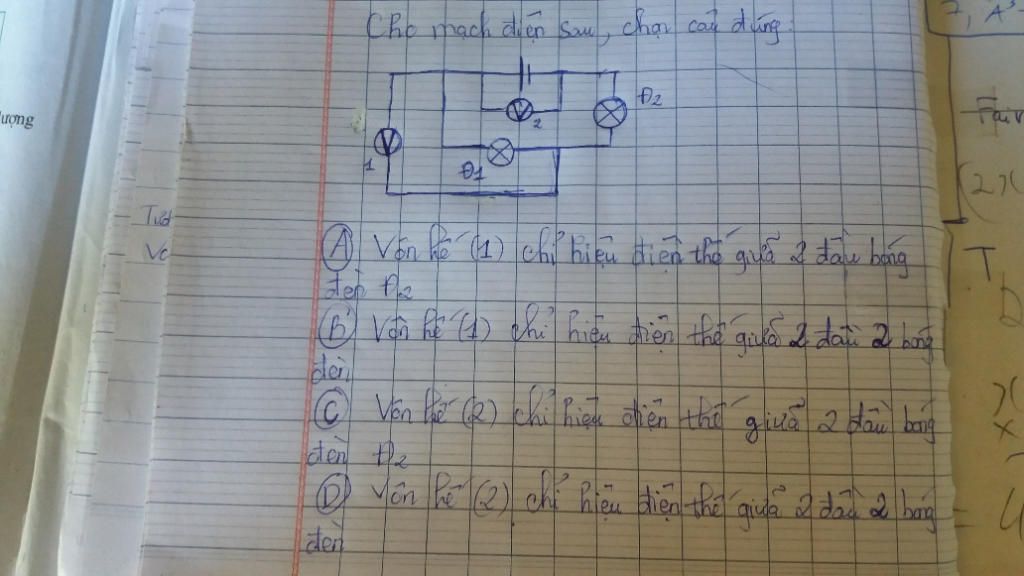 Cho mạch điện sau, chọn câu đúng.
Đ2
2
1
Đ1
(A) Vôn kế (1) chỉ hiệu điện thế giữa 2 đầu bóng
đèn Đ2
(B) Vôn kế (1) chỉ hiệu điện thế giữa 2 đầu 2 bóng
đèn
(C) Vôn kế (2) chỉ hiệu điện thế giữa 2 đầu bóng
đèn Đ2
(D) Vôn kế (2) chỉ hiệu điện thế giữa 2 đầu 2 bóng
đèn
ượng